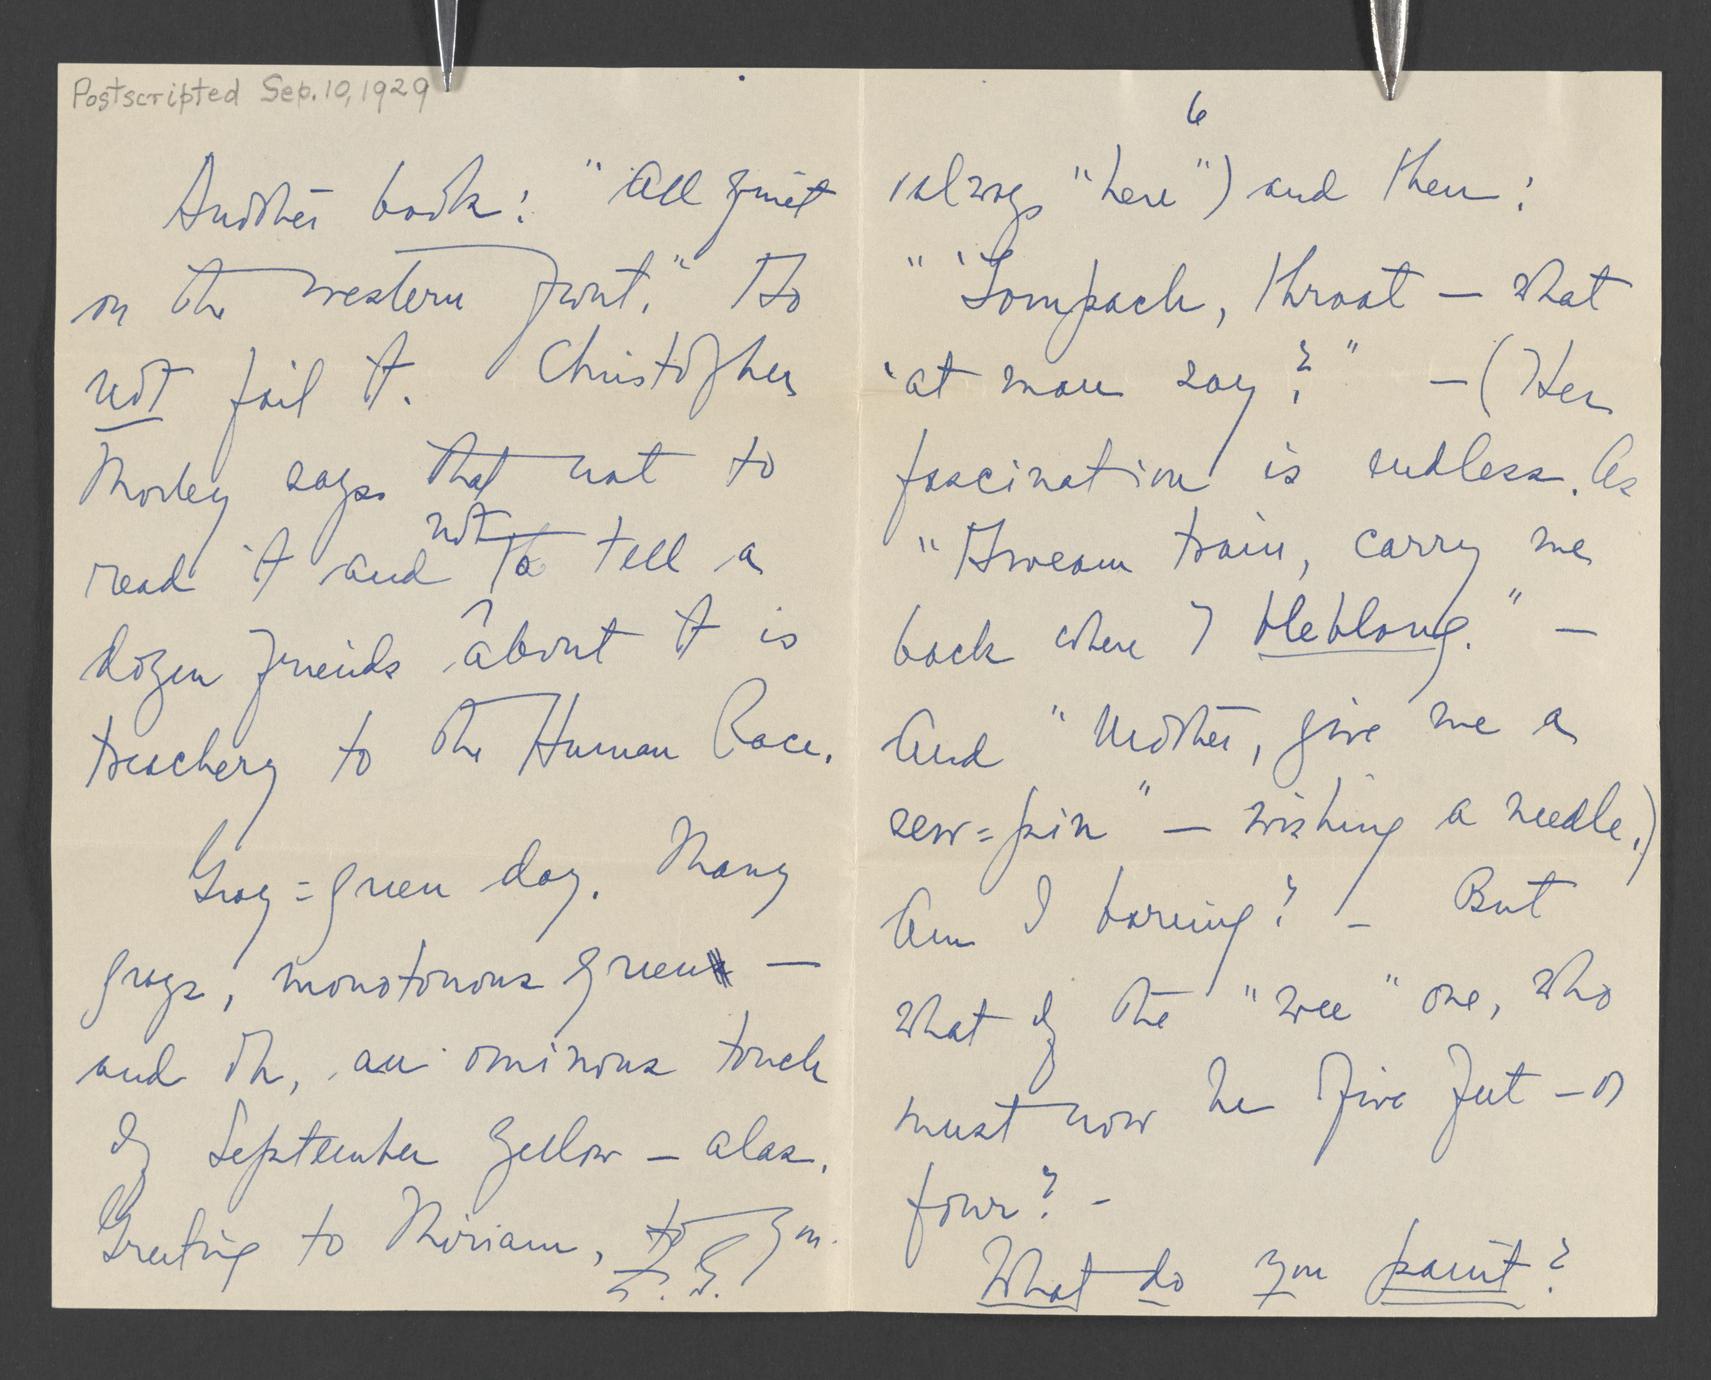 Postscripted Sep. 10, 1929
Another book: "All quiet
on the western front." Do
not fail it. Christopher
Morley says that not to
read it and not to tell a
dozen friends about it is
treachery to the Human Race.
Gray=green day. Many
grays, monotonous green —
and oh, an ominous touch
of September yellow — alas.
Greeting to Miriam, to you.
6
(always "here") and then:
"'Tompach, throat — what
'at man say?" — (Her
fascination is endless. As
"Dweam train, carry me
back where I bleblong." —
And "Mother, give me a
sew=pin" — wishing a needle.)
Am I boreing? — But
what of the "wee" one, who
must now be five feet — or
four? —
What do you paint?